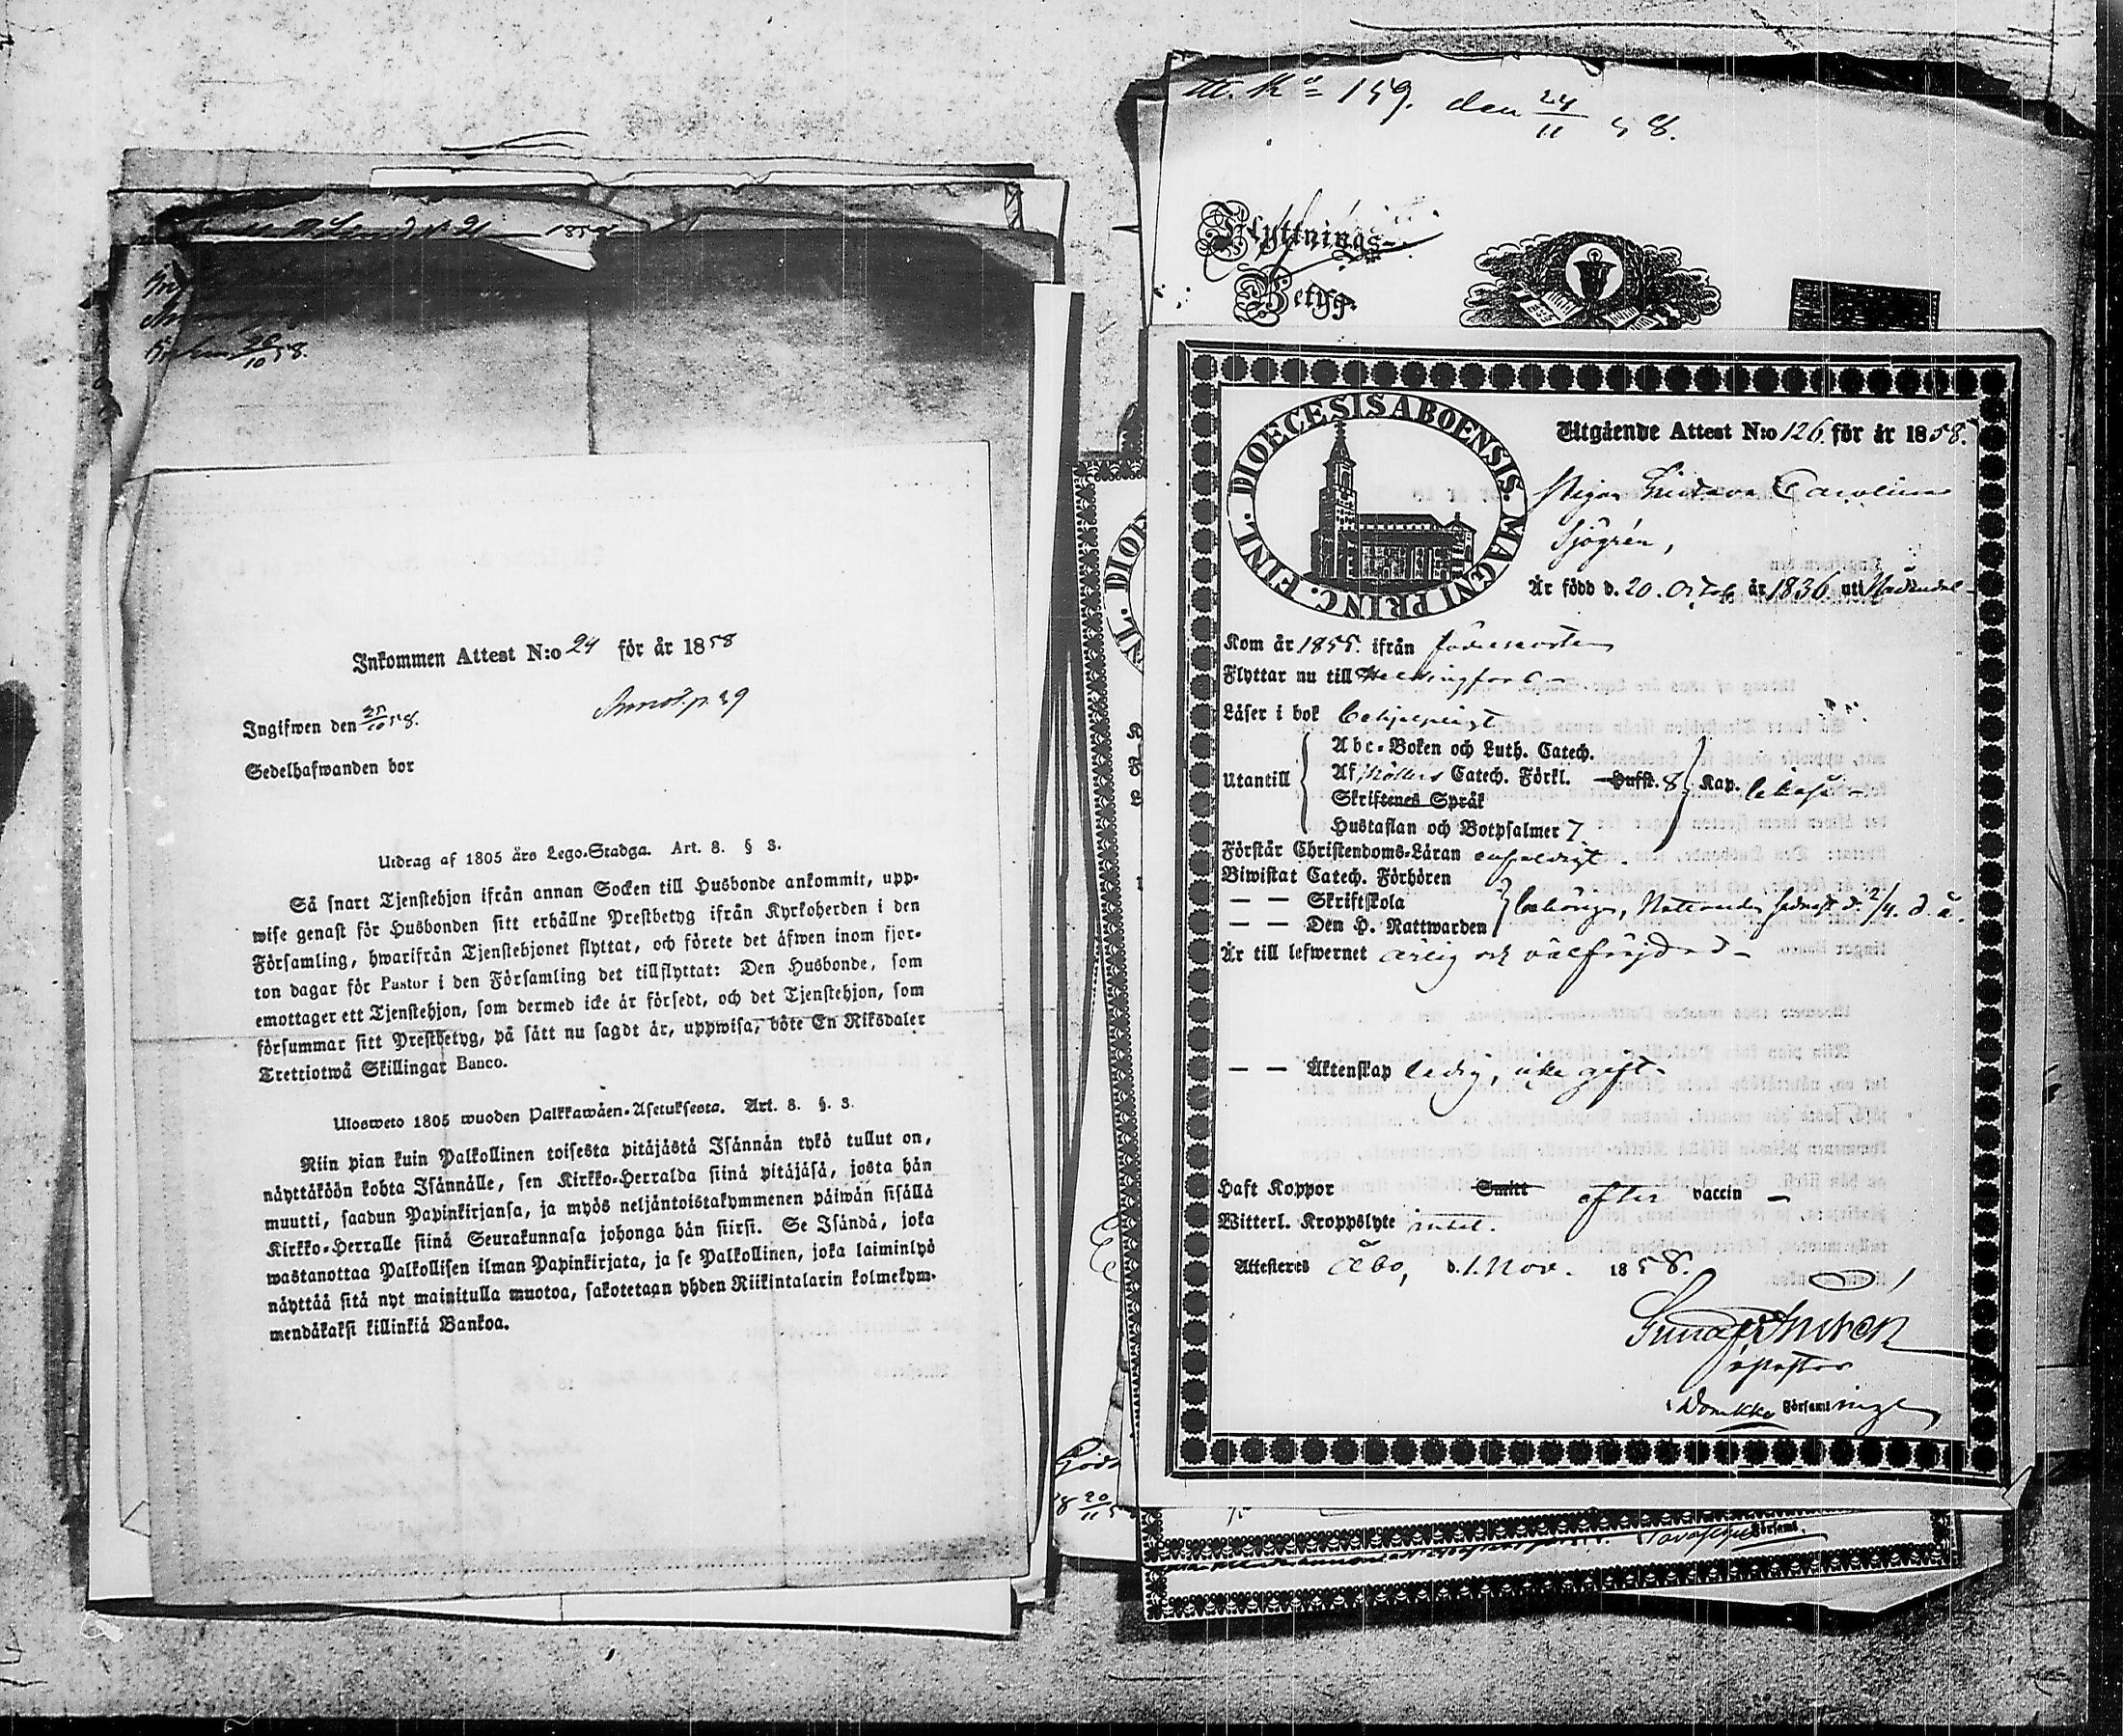 1858
20/10 58.
Inkommen Attest N:o 24 för år 1858
Annot. p. 29
Ingifwen den 25/10 58.
Sedelhafwanden bor
Utdrag af 1805 års Lego-Stadga. Art. 8. § 3.
Så snart Tjenstehjon ifrån annan Socken till Husbonde ankommit, upp-
wise genast för Husbonden sitt erhållne Prestbetyg ifrån Kyrkoherden i den
Församling, hwarifrån Tjenstehjonet flyttat, och förete det äfwen inom fjor-
ton dagar för Pastor i den Församling det tillflyttat: Den Husbonde, som
emottager ett Tjenstehjon, som dermed icke är försedt, och det Tjenstehjon, som
försummar sitt Prestbetyg, på sätt nu sagdt är, uppwisa, böte En Riksdaler
Trettiotwå Skillingar Banco.
Ulosweto 1805 wuoden Palkkawäen-Asetuksesta. Art. 8. §. 3.
Niin pian kuin Palkollinen toisesta pitäjästä Isännän tykö tullut on,
näyttäköön kohta Isännälle, sen Kirkko-Herralda siinä pitäjäsä, josta hän
muutti, saadun Papinkirjansa, ja myös neljäntoistakymmenen päiwän sisällä
Kirkko-Herralle siinä Seurakunnasa johonga hän siirsi. Se Isändä, joka
wastanottaa Palkollisen ilman Papinkirjata, ja se Palkollinen, joka laiminlyö
näyttää sitä nyt mainitulla muotoa, sakotetaan yhden Riikintalarin kolmekym-
mendäkaksi killinkiä Bankoa.
159. den 24/11 58.
Flyttnings-
Betyg.
DIOECESIS ABOENSIS. MAGNI PRINC. FINL.
Utgående Attest N:o 126. för år 1858.
Pigan Gustava Carolina
Sjögrén,
Är född d. 20. Octob år 1836 uti Nådendal
Kom år 1855. ifrån födelseorten
Flyttar nu till Helsingfors
Läser i bok behjelpligt
Utantill
Abc-Boken och Luth. Catech.
Af Möllers Catech. Förkl. Hufst. 8 Kap.
Skriftenes Språk
Hustaflan och Botpsalmer 7.
Förstår Christendoms-Läran enfaldigt.
Biwistat Catech. Förhören
— — Skriftskola
— — Den H. Nattwarden
Är till lefwernet ärlig och välfrejdad
— — Äktenskap ledig, icke gift
Haft Koppor Smitt efter vaccin
Witterl. Kroppslyte intet.
Attesteres Åbo, d. 1. Nov. 1858.
i Domkko Församlingen
20/11
Församl.